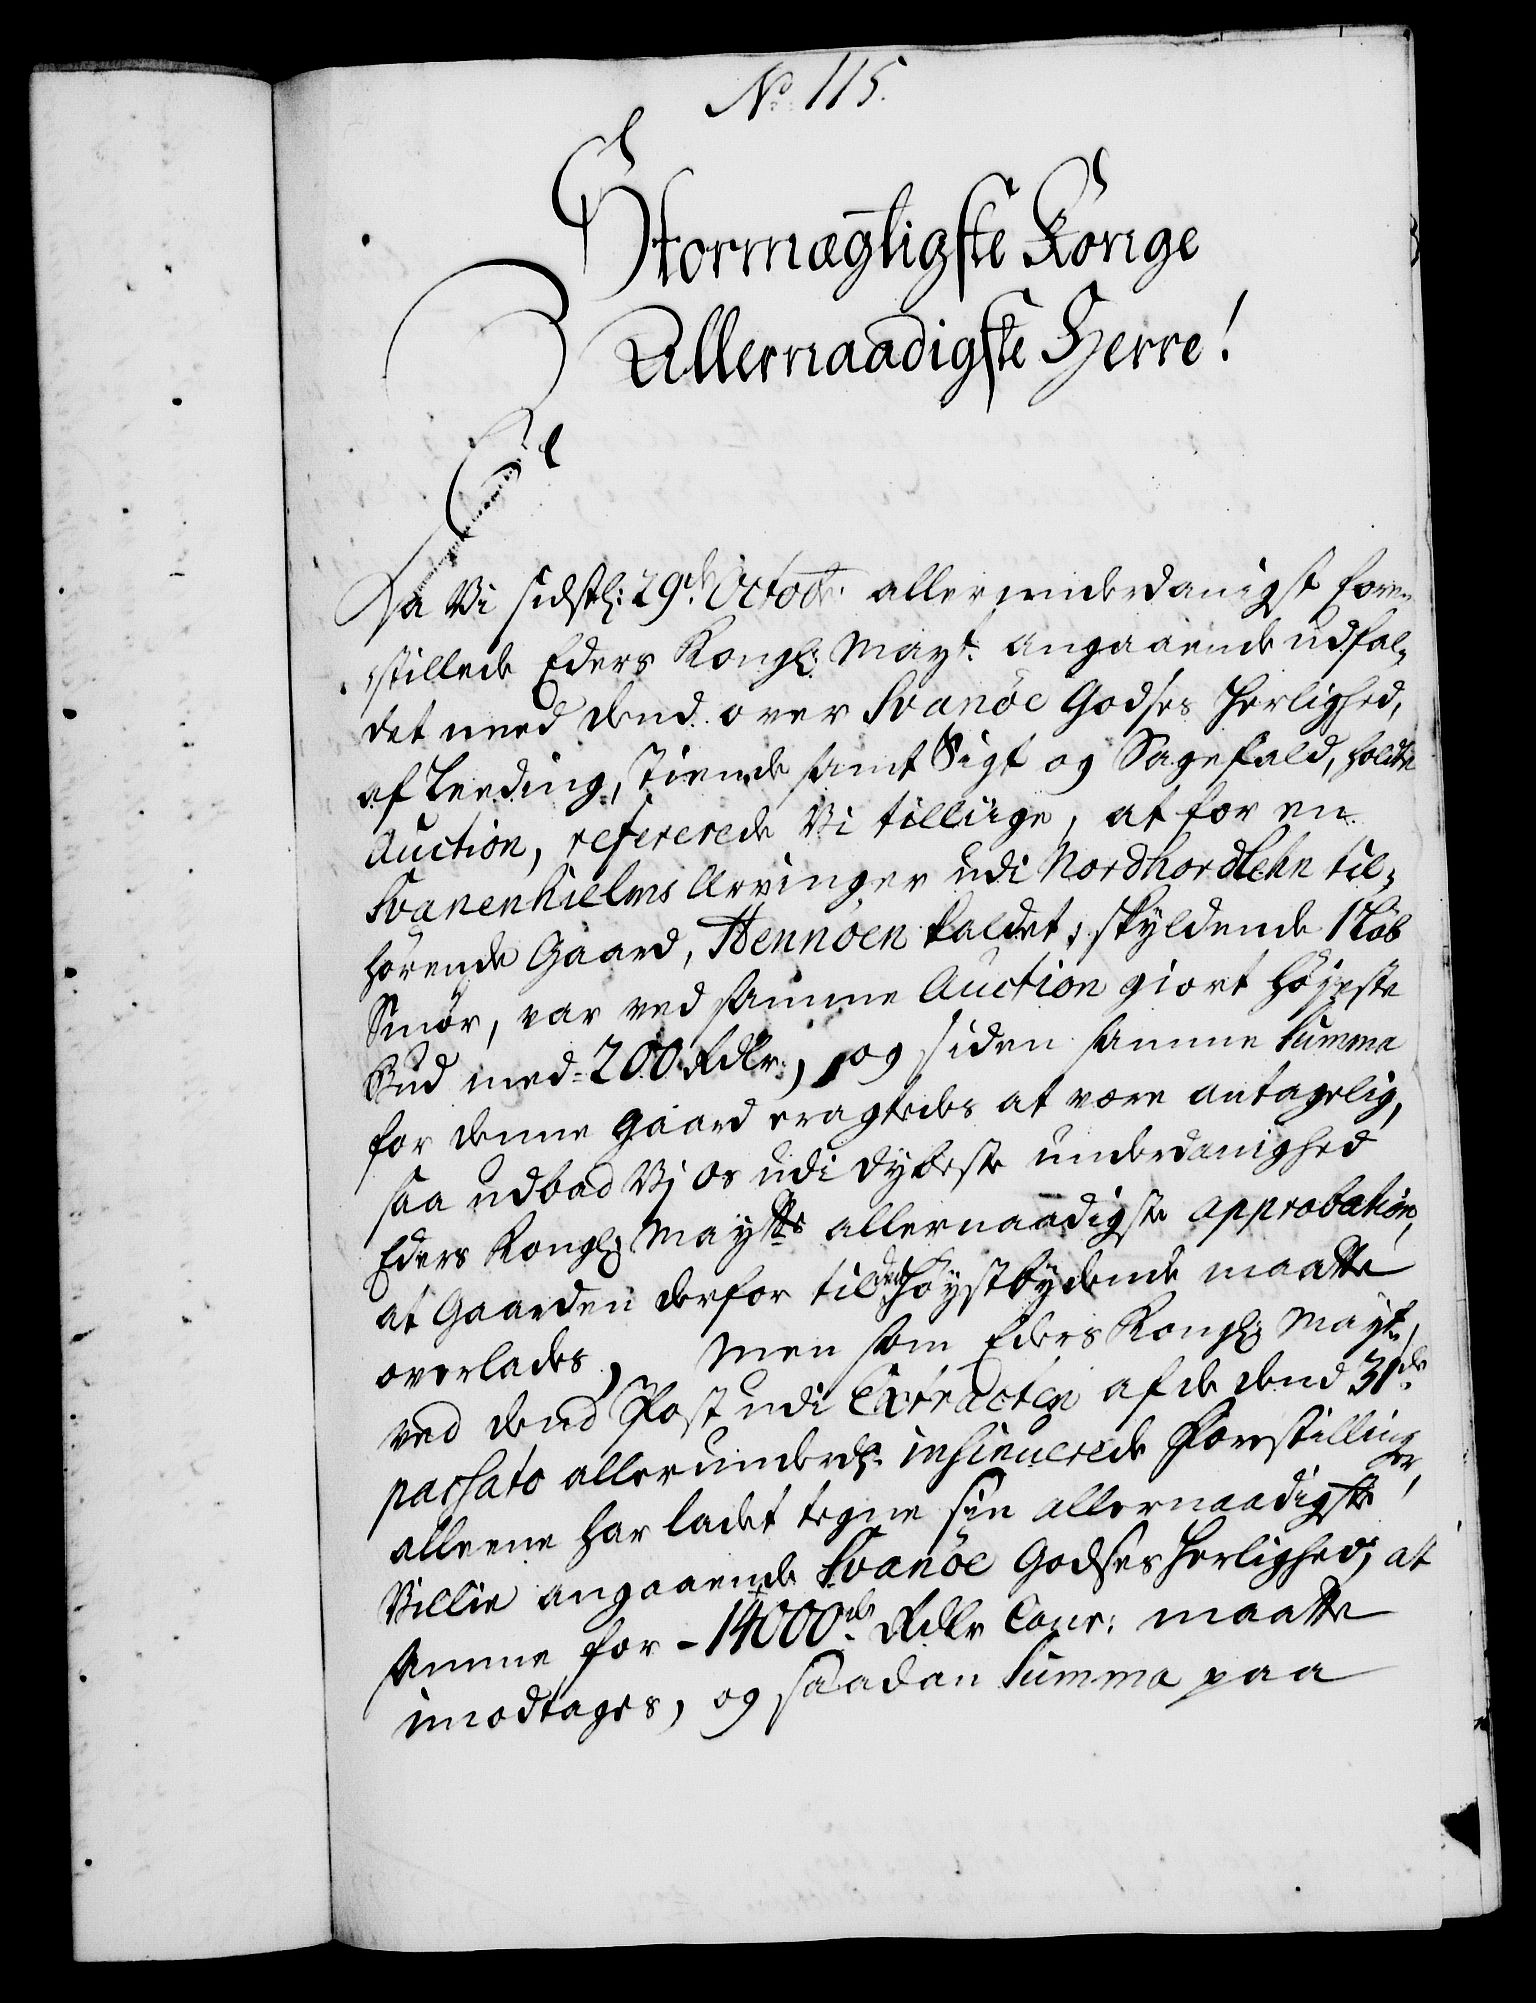 No. 115.
Stormægtigste Konge
Allernaadigste Herre!
Da Vi sidstl: 29de Octobr: allerunderdanigst fore-
stillede Eders Kongl: Mayt: angaaende udfal-
det med dend over Svanöe Godses Herlighed,
af Leeding, Tiende samt Sigt og Sagefald, holdte
Auction, refererede Vi tilliige, at for en
Svanenhielms Arvinger udi Nordhordlehn til-
hørende Gaard, Hennöen kaldet, skyldende 1 Løb
Smör, var ved samme Auction giort Høyeste
Bud med 200 Rdlr, og siden samme Summa
for denne Gaard eragtedes at være antagelig,
saa udbad Vj os udi dybeste underdanighed
Eders Kongl: Maytts allernaadigste approbation,
at Gaarden derfor til den Høystbydende maatte
overlades, Men som Eders Kongl: Mayt:
ved dend Post udi Extracten af de dend 31de
passato allerunderd: insinuerede Forestillinger,
alleene har ladet tegne sin allernaadigste
Villie angaaende Svanöe Godses Herlighed, at
samme for 14000de Rdlr Cour: maatte
imodtages, og saadan Summa paa